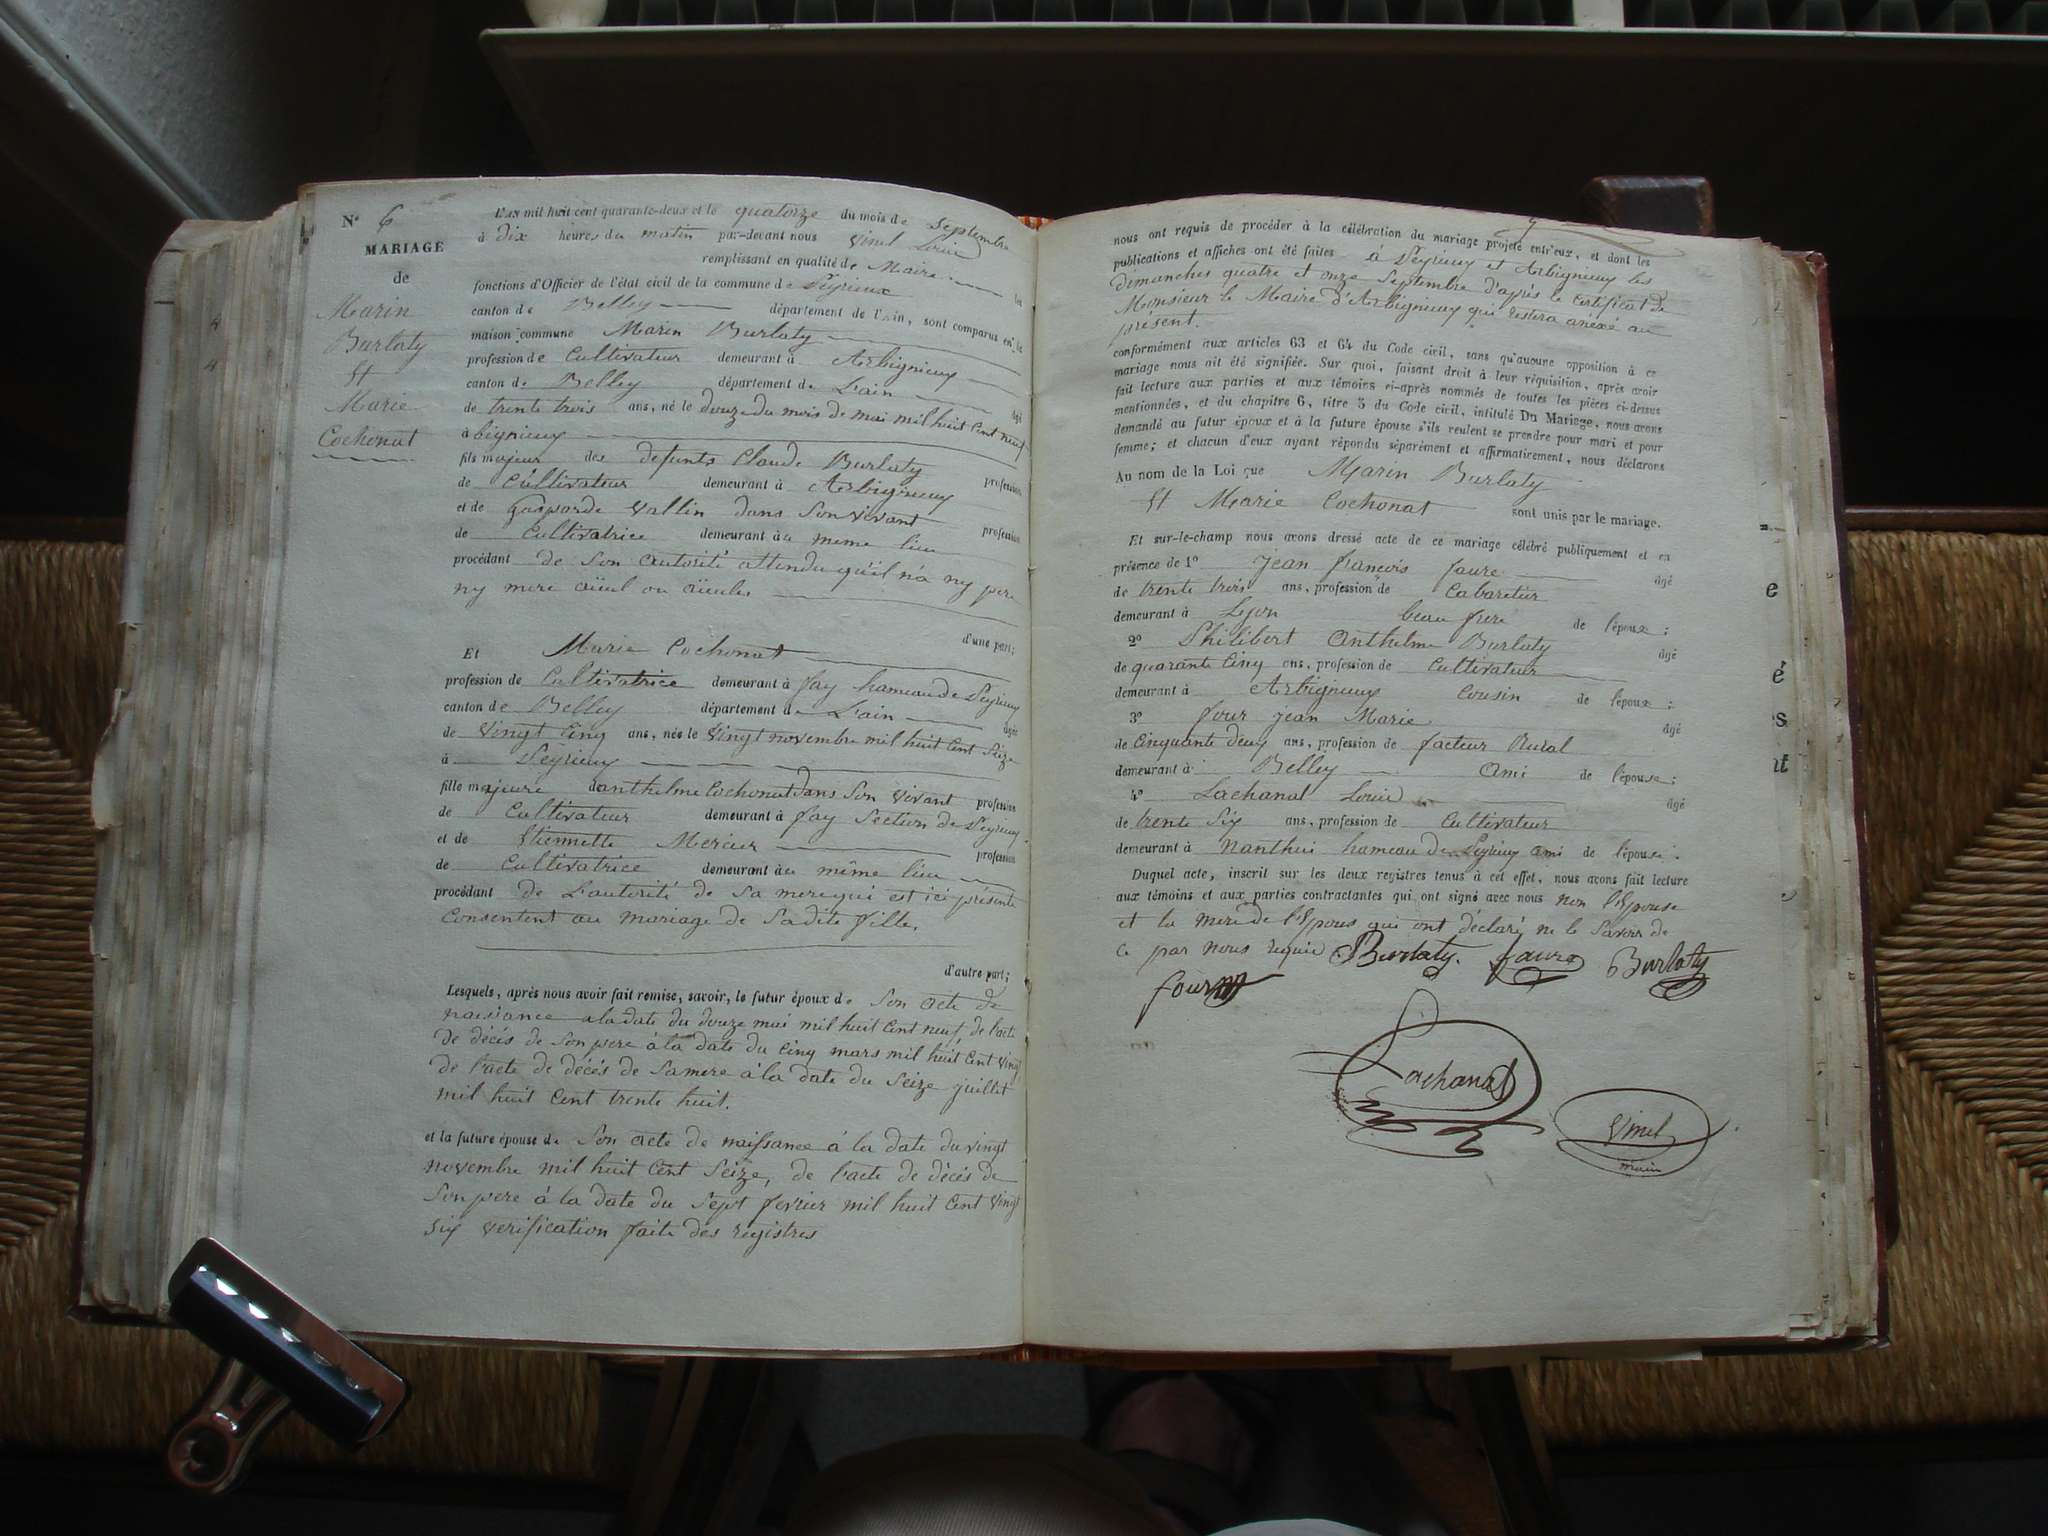 N° 6
MARIAGE
de
Marin
Burlaty
Et
Marie
Cochonat
L'AN mil huit cent quarante-deux et le quatorze du mois de Septembre
à dix heures du matin par-devant nous Vinel Louis
remplissant en qualité de Maire les
fonctions d'Officier de l'état civil de la commune de Peyrieux
canton de Belley département de l'Ain, sont comparus en la
maison commune Marin Burlaty
profession de Cultivateur demeurant à Arbignieuy
canton de Belley département de L'ain âgé
de trente trois ans, né le douze du mois de mai mil huit Cent neuf
à bignieuy
fils majeur des defunts Claude Burlaty profession
de Cultivateur demeurant à Arbignieuy
et de Gasparde Vallin dans Son vivant profession
de Cultivatrice demeurant au meme lieu
procédant de Son autorité attendu qu'il n'a ny pere
ny mere aïeul ou aïeules
d'une part;
Et Marie Cochonat
profession de Cultivatrice demeurant à fay hameau de Peyrieuy
canton de Belley département de L'ain âgée
de Vingt Cinq ans, née le Vingt novembre mil huit Cent Seize
à Peyrieuy
fille majeure d'anthelme Cochonat dans Son vivant profession
de Cultivateur demeurant à fay Section de Peyrieuy
et de Etiennette Mercier profession
de Cultivatrice demeurant au même lieu
procédant de L'autorité de Sa mere qui est ici présente
Consentent au mariage de Sadite fille.
d'autre part;
Lesquels, après nous avoir fait remise, savoir, le futur époux de Son acte de
naisiance a la date du douze mai mil huit Cent neuf, de l'acte
de décés de Son pere à la date du Cinq mars mil huit Cent vingt
de l'acte de décés de Sa mere à la date du Seize juillet
mil huit Cent trente huit.
et la future épouse de Son acte de naissance à la date du vingt
novembre mil huit Cent Seize, de l'acte de décés de
Son pere à la date du Sept fevrier mil huit Cent Vingt
Six verification faite des registres
nous ont requis de procéder à la célébration du mariage projeté entr'eux, et dont les
publications et affiches ont été faites à Peyrieuy et Arbignieuy les
dimanches quatre et onze Septembre d'après le Certificat de
Monsieur le Maire d'Arbignieuy qui restera anéxé au
présent.
conformément aux articles 63 et 64 du Code civil, sans qu'aucune opposition à ce
mariage nous ait été signifiée. Sur quoi, faisant droit à leur réquisition, après avoir
fait lecture aux parties et aux témoins ci-après nommés de toutes les pièces ci-dessus
mentionnées, et du chapitre 6, titre 5 du Code civil, intitulé Du Mariage, nous avons
demandé au futur époux et à la future épouse s'ils veulent se prendre pour mari et pour
femme; et chacun d'eux ayant répondu séparément et affirmativement, nous déclarons
Au nom de la Loi que Marin Burlaty
Et Marie Cochonat sont unis par le mariage.
Et sur-le-champ nous avons dressé acte de ce mariage célébré publiquement et en
présence de 1° jean francois faure âgé
de trente trois ans, profession de Cabaretier
demeurant à Lyon beau frere de l'époux;
2° Philibert Anthelme Burlaty âgé
de quarante Cinq ans, profession de Cultivateur
demeurant à Arbignieuy Cousin de l'époux;
3° four jean Marie âgé
de Cinquante deuy ans, profession de facteur Rural
demeurant à Belley Ami de l'épouse;
4° Lachanal Louis âgé
de trente Six ans, profession de Cultivateur
demeurant à Nanthui hameau de Peyrieuy ami de l'épouse.
Duquel acte, inscrit sur les deux registres tenus à cet effet, nous avons fait lecture
aux témoins et aux parties contractantes qui ont signé avec nous non l'Epouse
et la mere de l'Epouse qui ont déclaré ne le Savoir de
Ce par nous requis Burlaty. faure Burlaty
four
Lachanal
Vinel
maire